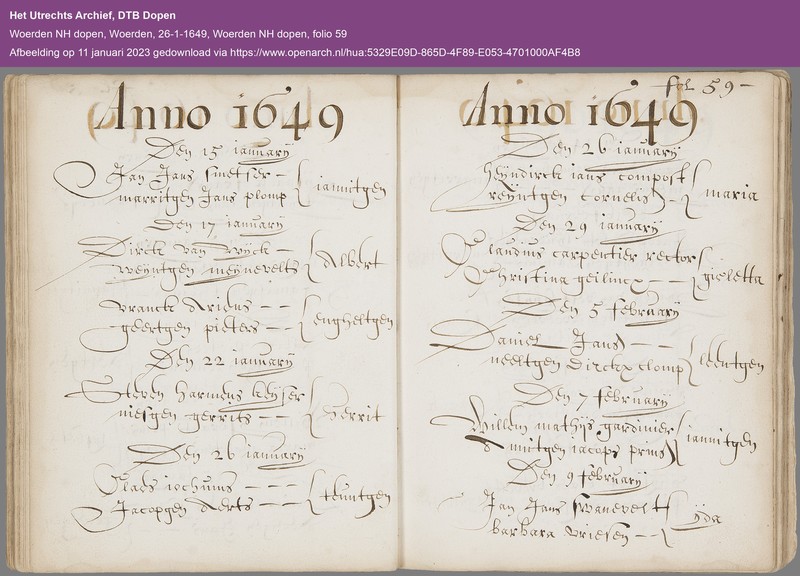 Het Utrechts Archief, DTB Dopen
Woerden NH dopen, Woerden, 26-1-1649, Woerden NH dopen, folio 59
Afbeelding op 11 januari 2023 gedownload via https://www.openarch.nl/hua:5329E09D-865D-4F89-E053-4701000AF4B8
Anno 1649
Den 15 january
Jan Jans smetser
marritgen Jans plomp
iannitgen
Den 17 january
Dirck van Wijck
weyntgen meynevelts
Albert
Vranck Ariens
geertgen pieters
engheltgen
Den 22 january
Steven harmens keyser
niesgen gerrits
Gerrit
Den 26 january
Claes iochums
Jacopgen Aerts
teuntgen
fol 59
Anno 1649
Den 26 january
heyndirck ians compost
reyntgen cornelis
maria
Den 29 january
Claudius carpentier rector
Christina geilincx
gioletta
Den 5 february
Daniel Jans
neeltgen dirckx clomp
leentgen
Den 7 february
Willem mathijs gardinier
mutgen iacops prins
iannitgen
Den 9 february
Jan Jans swanevelt
barbara vriesen
yda